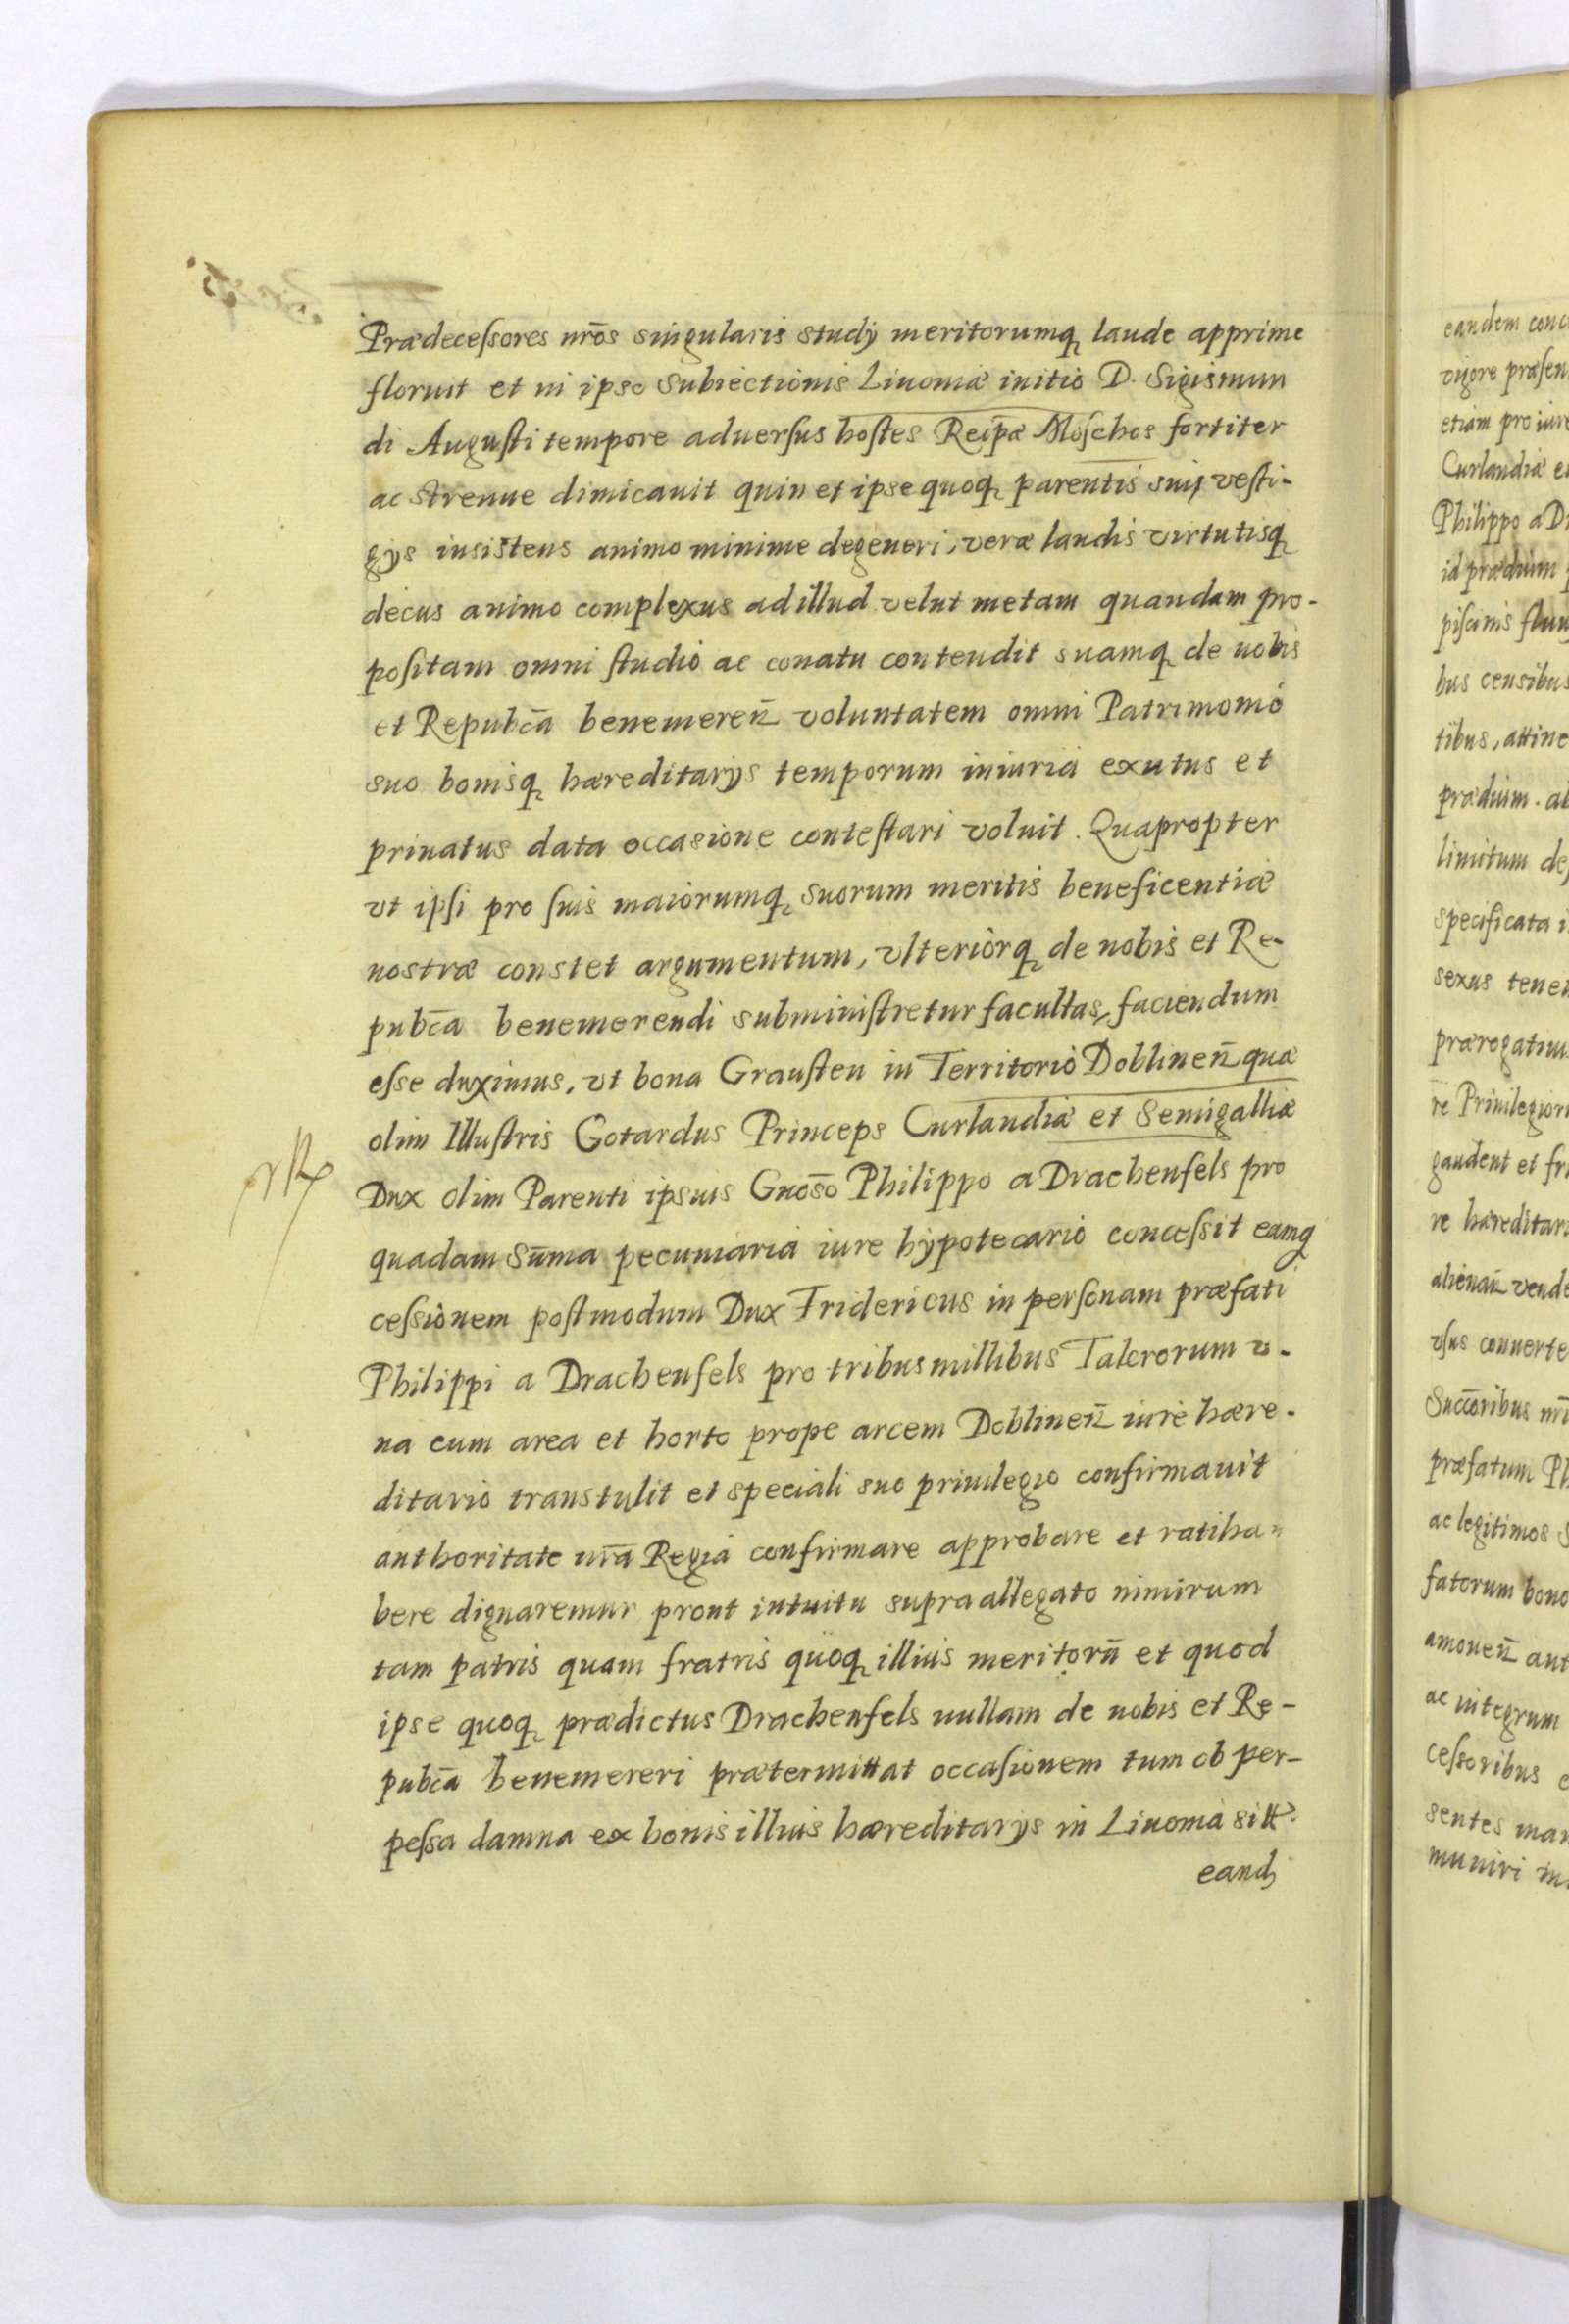 Prædecessores nr̄os singularis studij meritorumq; laude apprime
floruit et in ipso Subiectionis Liuoniæ initio D. Sigismun
di Augusti tempore aduersus hostes Reip̄æ Moschos fortiter
ac strenue dimicauit quin et ipse quoq; parentis sui vesti-
gijs insistens animo minime degeneri, veræ laudis virtutisq;
decus animo complexus ad illud velut metam quandam pro-
positam omni studio ac conatu contendit suamq; de nobis
et Repubc̄a benemeren̄ voluntatem omni Patrimonio
suo bonisq; hæreditarijs temporum iniuria exutus et
priuatus data occasione contestari voluit. Quapropter
vt ipsi pro suis maiorumq; suorum meritis beneficentiæ
nostræ constet argumentum, vlteriorq; de nobis et Re-
pubc̄a benemerendi subministretur facultas, faciendum
esse duximus, vt bona Grausten in Territorio Doblinen̄ quæ
olim Illustris Gotardus Princeps Curlandiæ et Semigalliæ
Dux olim Parenti ipsius Gnōso Philippo a Drachenfels pro
quadam sūma pecuniaria iure hypotecario concessit eamq
cessionem postmodum Dux Fridericus in personam præfati
Philippi a Drachenfels pro tribus millibus Talerorum v-
na cum area et horto prope arcem Doblinen̄ iure hære-
ditario transtulit et speciali suo priuilegio confirmauit
authoritate nr̄a Regia confirmare approbare et ratiha
bere dignaremur prout intuitu supra allegato nimirum
tam patris quam fratris quoq; illius meritorū et quod
ipse quoq; prædictus Drachenfels nullam de nobis et Re-
pubc̄a benemereri prætermittat occasionem tum ob per-
pessa damna ex bonis illius hæreditarijs in Liuonia sitt.
eand;
eandem conc
vigore præsen
etiam pro iure
Curlandiæ e
Philippo a D
id prædium
piscinis fluu
bus censibus
tibus, attine
prædium. a
limitum de
specificata i
sexus tene
prærogatiu
re Priuilegior
gaudent et fr
re hæreditar
alienan̄ vend
vsus conuerte
Succ̄oribus nr̄i
præfatum P
ac legitimos
fatorum bon
amouen̄ aut
ac integrum
cessoribus
sentes man
muniri in